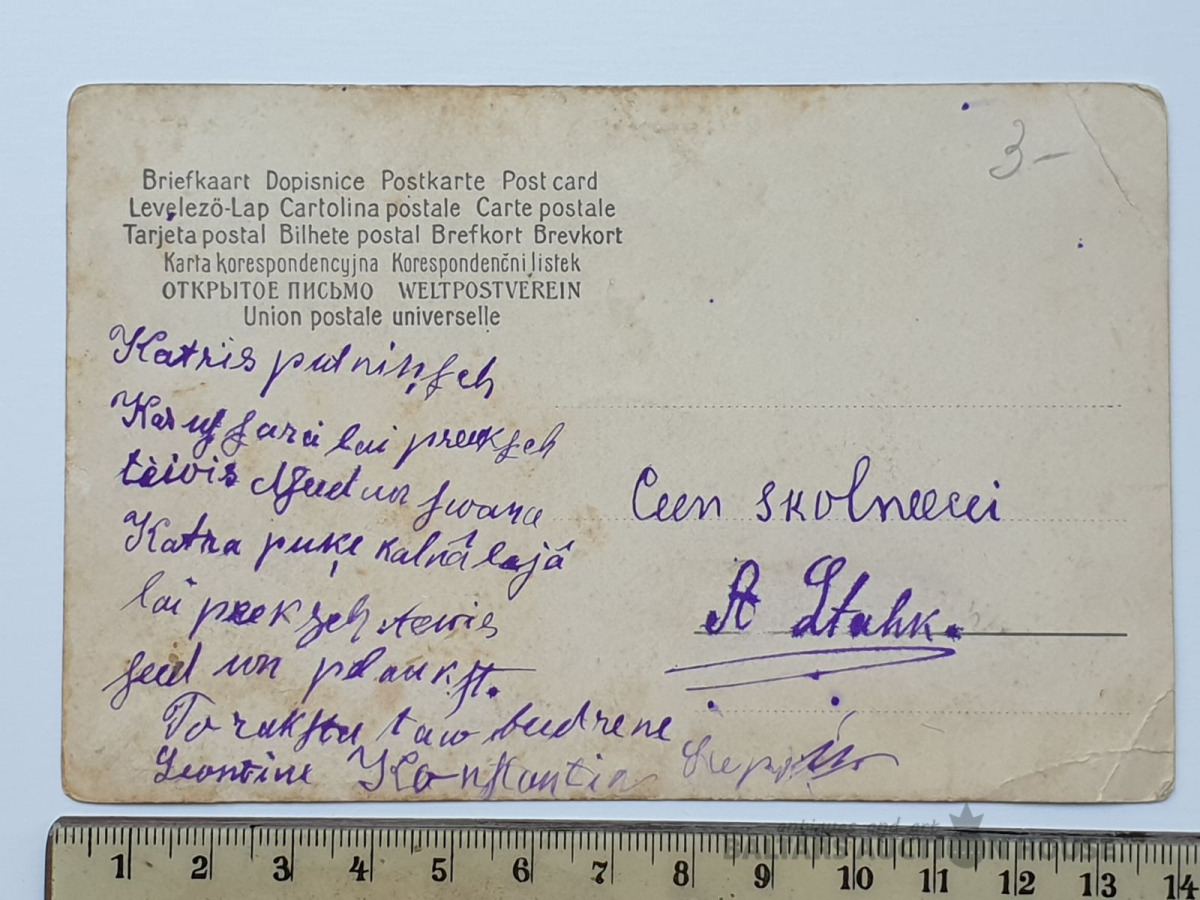 3-
Briefkaart Dopisnice Postkarte Post card
Levelező-Lap Cartolina postale Carte postale
Tarjeta postal Bilhete postal Brefkort Brevkort
Karta korespondencyjna Korespondenčni listek
ОТКРЫТОЕ ПИСЬМО WELTPOSTVEREIN
Union postale universelle
Katris putniņsch
Kas us sara lai preeksch
tèivis dseed un swana
Katra puķe kalnâ lejâ
lai preeksch tewis
seed un plaukst.
To rakstu taw beedrene
Leontine Konstantin
Ceen skolneecei
A Stahk.
antiques and art
BALTARS AUCTION HOUSE
1 2 3 4 5 6 7 8 9 10 11 12 13 14